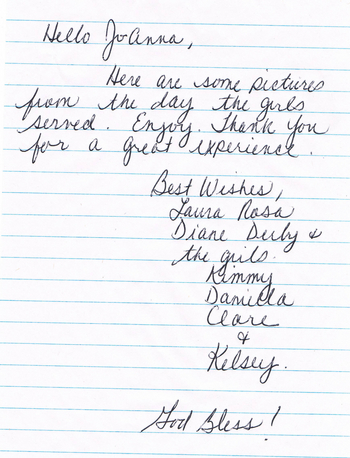 Hello JoAnna,
Here are some pictures
from the day the girls
served. Enjoy. Thank you
for a great experience.
Best Wishes,
Laura Rosa
Diane Derby &
the girls.
Kimmy
Daniella
Clare
&
Kelsey.
God Bless!